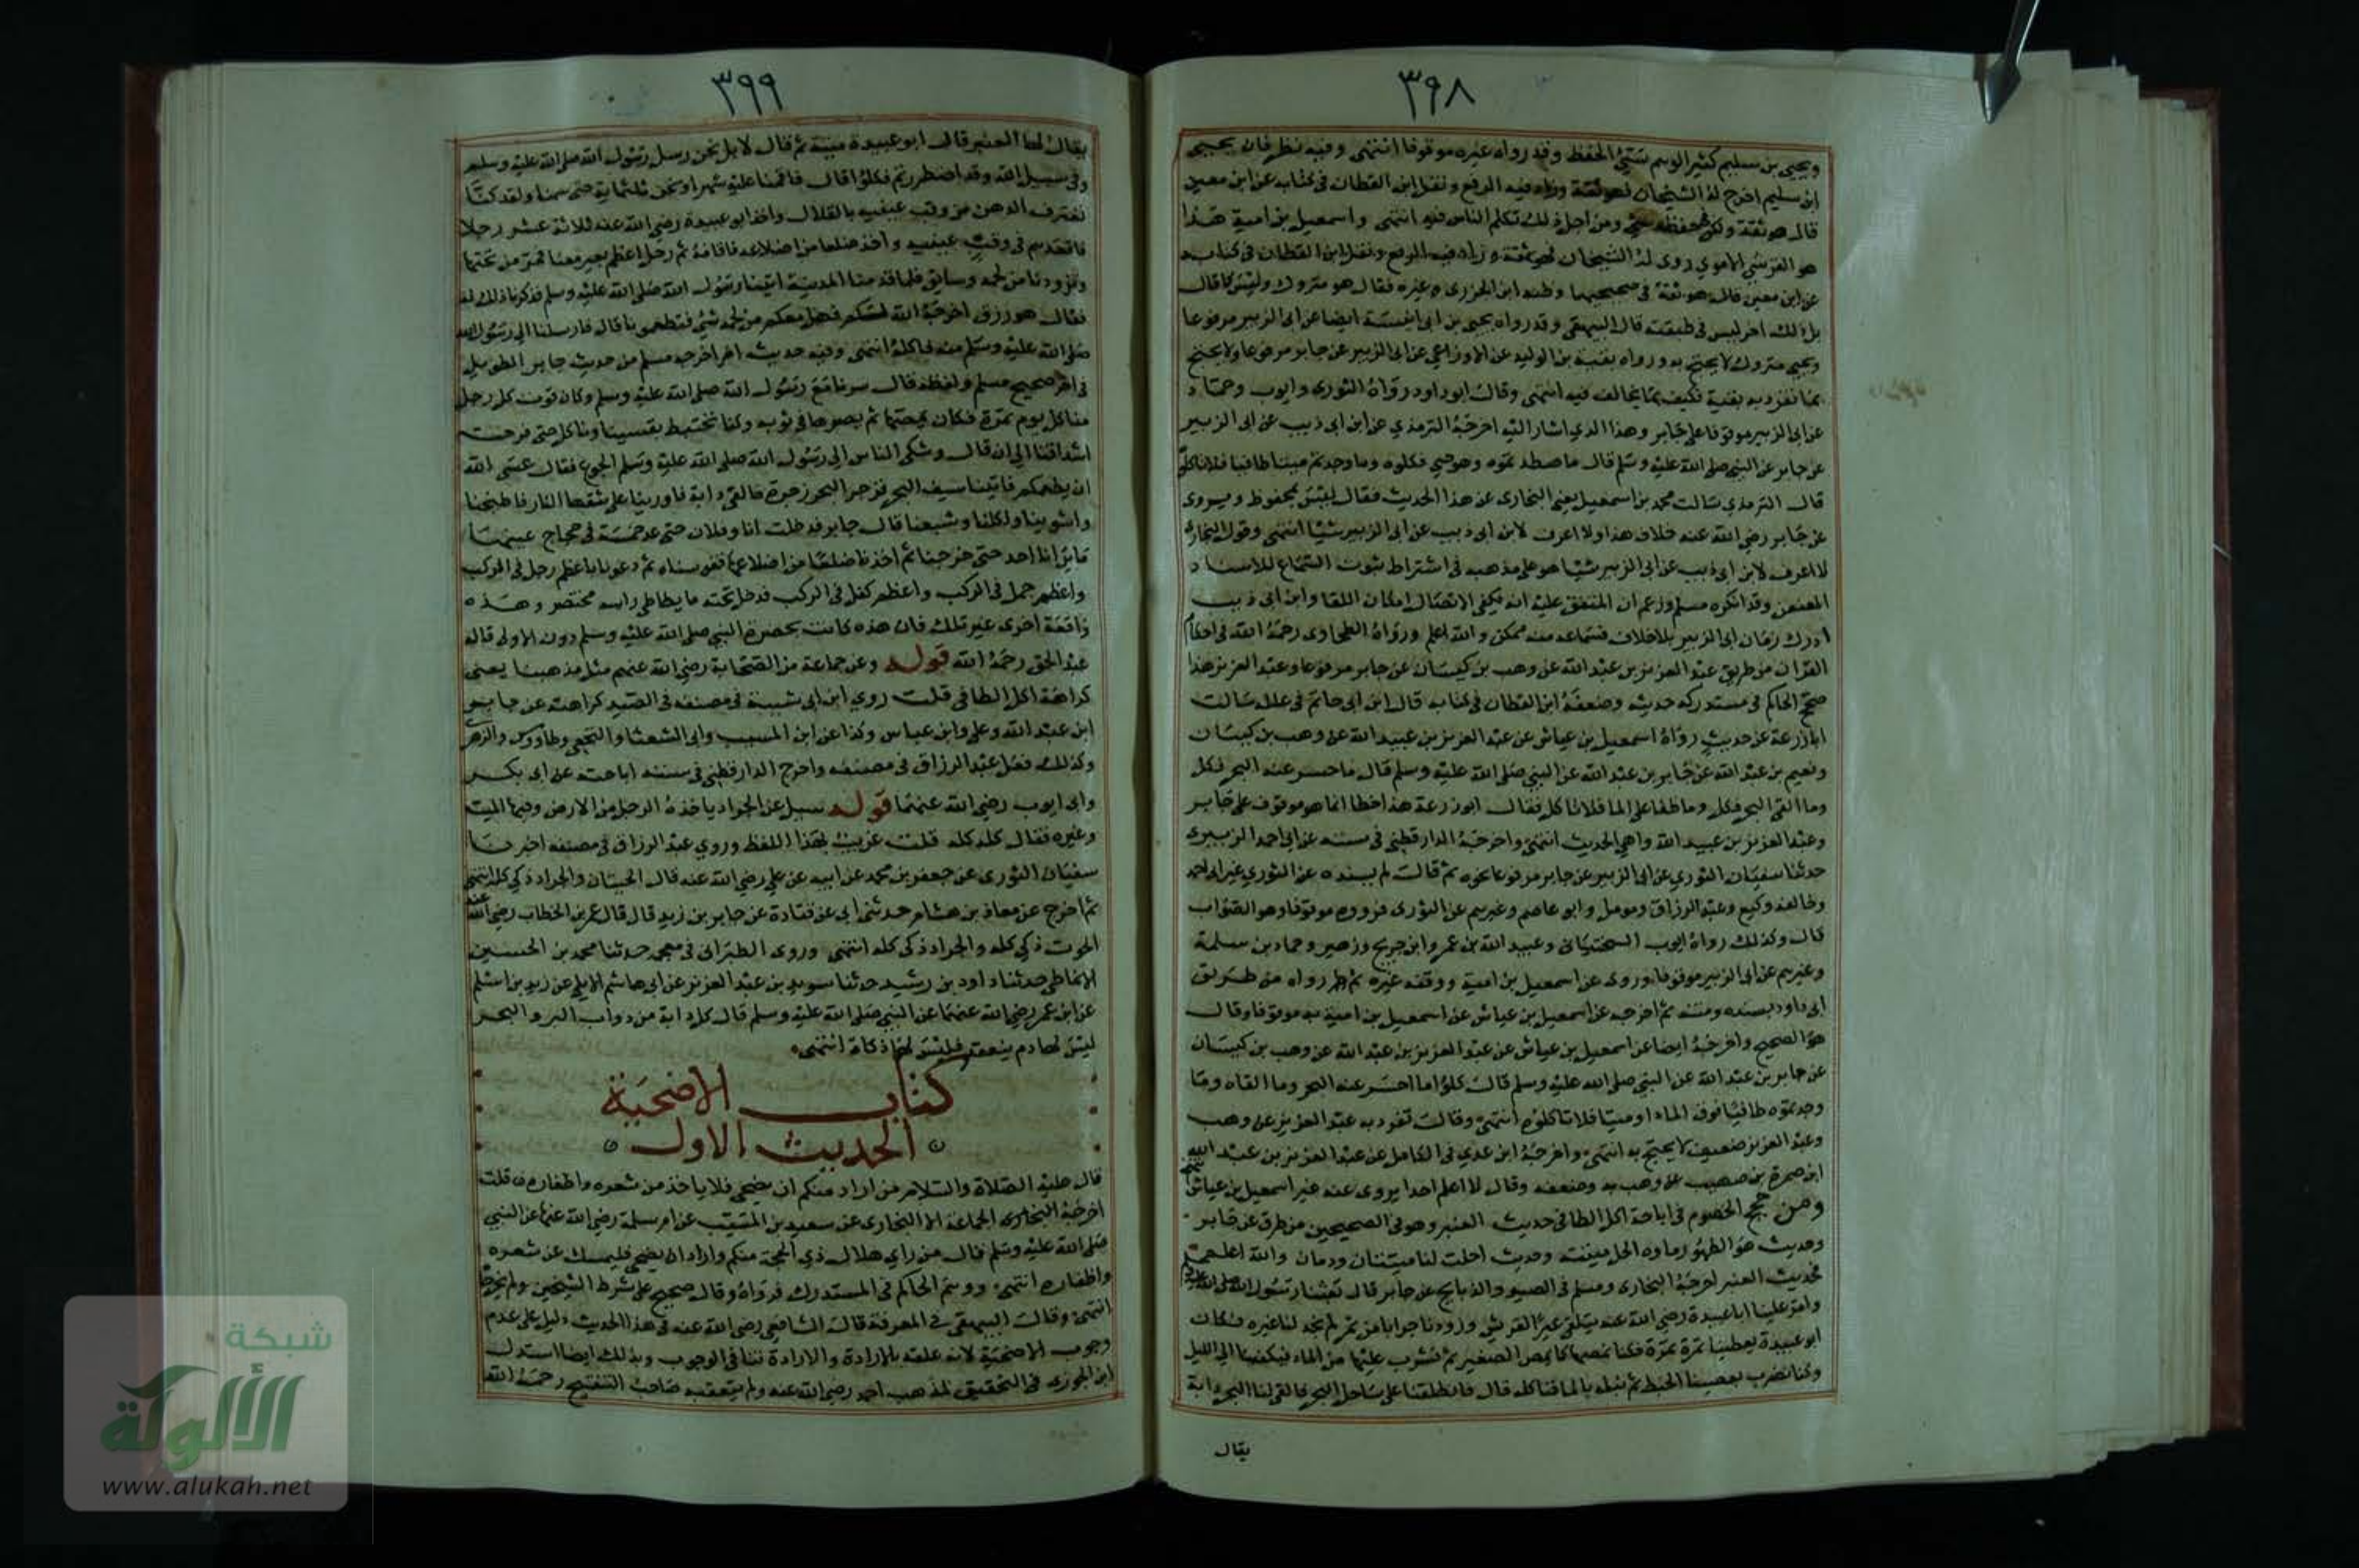 ٣٩٨
ويحيى بن سليم كثير الوهم سيئ الحفظ وقد رواه غيره موقوفا انتهى وفيه نظر فان يحيى
ابن سليم اخرج له الشيخان فهو ثقة وزاد فيه الرفع ونقل ابن القطان في كتابه عن ابن معين
قال هو ثقة ولكن في حفظه شيء ومن اجل ذلك تكلم الناس فيه انتهى واسمعيل بن امية هذا
هو القرشي الاموي روى له الشيخان فهو ثقة وزاد فيه الرفع ونقل ابن القطان في كتابه
عن ابن معين قال هو ثقة في صحيحيهما وظنه ابن الجوزى وغيره فقال هو متروك وليس كما قال
بل ذلك اخر ليس في طبقته قال البيهقى وقد رواه يحيى بن ابى انيسة ايضا عن ابى الزبير مرفوعا
ويحيى متروك لا يحتج به ورواه بقية بن الوليد عن الاوزاعي عن ابى الزبير عن جابر مرفوعا ولا يحتج
بما تفرد به بقية فكيف بما يخالف فيه انتهى وقال ابو داود رواه الثورى وايوب وحماد
عن ابى الزبير موقوفا على جابر وهذا الذي اشار اليه اخرجه الترمذي عن ابن ابى ذيب عن ابى الزبير
عن جابر عن النبي صلى الله عليه وسلم قال ما اصطدتموه وهو حي فكلوه وما وجدتم ميتا طافيا فلا تاكلوه
قال الترمذي سالت محمد بن اسمعيل يعني البخارى عن هذا الحديث فقال ليس بمحفوظ ويروى
عن جابر رضي الله عنه خلاف هذا ولا اعرف لابن ابى ذيب عن ابى الزبير شيئا انتهى وقول البخارى
لا اعرف لابن ابى ذيب عن ابى الزبير شيئا هو على مذهبه في اشتراط ثبوت السماع للاسناد
المعنعن وقد انكره مسلم وزعم ان المتفق عليه انه يكفى الاتصال امكان اللقا وابن ابى ذيب
ادرك زمان ابى الزبير بلا خلاف فسماعه منه ممكن والله اعلم ورواه الطحاوى رحمه الله في احكام
القران من طريق عبد العزيز بن عبد الله عن وهب بن كيسان عن جابر مرفوعا وعبد العزيز هذا
صحح الحاكم في مستدركه حديثه وضعفه ابن القطان في كتابه قال ابن ابى حاتم في علله سالت
ابا زرعة عن حديث رواه اسمعيل بن عياش عن عبد العزيز بن عبيد الله عن وهب بن كيسان
ونعيم بن عبد الله عن جابر بن عبد الله عن النبي صلى الله عليه وسلم قال ما حسر عنه البحر فكل
وما القى البحر فكل وما طفا على الما فلا تاكل فقال ابو زرعة هذا خطا انما هو موقوف على جابر
وعبد العزيز بن عبيد الله واهي الحديث انتهى واخرجه الدارقطني في سننه عن ابى احمد الزبيرى
حدثنا سفيان الثورى عن ابى الزبير عن جابر مرفوعا نحوه ثم قال لم يسنده عن الثورى غير ابى احمد
وخالفه وكيع وعبد الرزاق ومومل وابو عاصم وغيرهم عن الثورى فرووه موقوفا وهو الصواب
قال وكذلك رواه ايوب السختيانى وعبيد الله بن عمر وابن جريج وزهير وحماد بن سلمة
وغيرهم عن ابى الزبير موقوفا وروى عن اسمعيل بن امية ووقفه غيره ثم رواه من طريق
ابى داود بسنده ومتنه ثم اخرجه عن اسمعيل بن عياش عن اسمعيل بن امية به موقوفا وقال
هو الصحيح واخرجه ايضا عن اسمعيل بن عياش عن عبد العزيز بن عبد الله عن وهب بن كيسان
عن جابر بن عبد الله عن النبي صلى الله عليه وسلم قال كلوا ما احسر عنه البحر وما القاه وما
وجدتموه طافيا فوق الماء او ميتا فلا تاكلوه انتهى وقال تفرد به عبد العزيز عن وهب
وعبد العزيز ضعيف لا يحتج به انتهى واخرجه ابن عدي في الكامل عن عبد العزيز بن عبد الله
ابن حمزة بن صهيب عن وهب به وضعفه وقال لا اعلم احدا يروى عنه غير اسمعيل بن عياش انتهى
ومن حجج الخصوم في اباحة اكل الطافي حديث العنبر وهو في الصحيحين من طرق عن جابر
وحديث هو الطهور ماوه الحل ميتته وحديث احلت لنا ميتتان ودمان والله اعلم
فحديث العنبر اخرجه البخارى ومسلم في الصيد والذبايح عن جابر قال بعثنا رسول الله صلى الله عليه وسلم
وامر علينا ابا عبيدة رضي الله عنه نتلقى عيرا لقريش وزودنا جرابا من تمر لم يجد لنا غيره فكان
ابو عبيدة يعطينا تمرة تمرة فكنا نمصها كما يمص الصغير ثم نشرب عليها من الماء فيكفينا الى الليل
وكنا نضرب بعصينا الخبط ثم نبله بالما فناكله قال فانطلقنا على ساحل البحر فالقى لنا البحر دابة
يقال
٣٩٩
يقال لها العنبر قال ابو عبيدة ميتة ثم قال لا بل نحن رسل رسول الله صلى الله عليه وسلم
وفي سبيل الله وقد اضطررتم فكلوا قال فاقمنا عليه شهرا ونحن ثلثماية حتى سمنا ولقد كنا
نغترف الدهن من وقب عينيه بالقلال واخذ ابو عبيدة رضي الله عنه ثلاثة عشر رجلا
فاقعدهم في وقب عينيه واخذ ضلعا من اضلاعه فاقامه ثم رحل اعظم بعير معنا فمر من تحتها
وتزودنا من لحمه وسايق فلما قدمنا المدينة اتينا رسول الله صلى الله عليه وسلم فذكرنا ذلك له
فقال هو رزق اخرجه الله لكم فهل معكم من لحمه شيء فتطعمونا قال فارسلنا الى رسول الله
صلى الله عليه وسلم منه فاكله انتهى وفيه حديث اخر اخرجه مسلم من حديث جابر الطويل
في اخر صحيح مسلم ولفظه قال سرنا مع رسول الله صلى الله عليه وسلم وكان قوت كل رجل
منا كل يوم تمرة فكان يمصها ثم يصرها في ثوبه وكنا نختبط بقسينا وناكل حتى قرحت
اشداقنا الى ان قال وشكى الناس الى رسول الله صلى الله عليه وسلم الجوع فقال عسى الله
ان يطعمكم فاتينا سيف البحر فزجر البحر زجرة فالقى دابة فاورينا على شقها النار فاطبخنا
واشوينا واكلنا وشبعنا قال جابر فدخلت انا وفلان حتى عد خمسة في حجاج عينها
ما يرانا احد حتى خرجنا ثم اخذنا ضلعا من اضلاعها فقوسناه ثم دعونا باعظم رجل في الركب
واعظم جمل في الركب واعظم كفل في الركب فدخل تحته ما يطاطى راسه مختصر وهذه
واقعة اخرى غير تلك فان هذه كانت بحضرة النبي صلى الله عليه وسلم دون الاولى قاله
عبد الحق رحمه الله قوله وعن جماعة من الصحابة رضي الله عنهم مثل مذهبنا يعنى
كراهة اكل الطافي قلت روى ابن ابى شيبة في مصنفه في الصيد كراهته عن جابر
ابن عبد الله وعلى وابن عباس وكذا عن ابن المسيب وابى الشعثا والنخعى وطاووس والزهرى
وكذلك فعل عبد الرزاق في مصنفه واخرج الدارقطنى في سننه اباحته عن ابى بكر
وابى ايوب رضي الله عنهما قوله سيل عن الجراد ياخذه الرجل من الارض وفيها الميت
وغيره فقال كله كله قلت غريب بهذا اللفظ وروى عبد الرزاق في مصنفه اخبرنا
سفيان الثورى عن جعفر بن محمد عن ابيه عن على رضي الله عنه قال الحيتان والجراد ذكي كله انتهى
ثم اخرج عن معاذ بن هشام حدثنى ابى عن قتادة عن جابر بن زيد قال قال عمر بن الخطاب رضي الله عنه
الحوت ذكي كله والجراد ذكى كله انتهى وروى الطبرانى في معجمه حدثنا محمد بن الحسين
الانماطى حدثنا داود بن رشيد حدثنا سويد بن عبد العزيز عن ابى هاشم الايلى عن زيد بن اسلم
عن ابن عمر رضي الله عنهما عن النبي صلى الله عليه وسلم قال كل دابة من دواب البر والبحر
ليس لها دم ينعقد فليس لها ذكاة انتهى
كتاب الاضحية
الحديث الاول
قال عليه الصلاة والسلام من اراد منكم ان يضحى فلا ياخذ من شعره واظفاره قلت
اخرجه الجماعة الا البخارى عن سعيد بن المسيب عن ام سلمة رضي الله عنها عن النبي
صلى الله عليه وسلم قال من راى هلال ذي الحجة منكم واراد ان يضحى فليمسك عن شعره
واظفاره انتهى ووهم الحاكم في المستدرك فرواه وقال صحيح على شرط الشيخين ولم يخرجاه
انتهى وقال البيهقى في المعرفة قال الشافعى رضي الله عنه في هذا الحديث دليل على عدم
وجوب الاضحية لانه علقه بالارادة والارادة تنافي الوجوب وبذلك ايضا استدل
ابن الجوزى في التحقيق لمذهب احمد رضي الله عنه ولم يتعقبه صاحب التنقيح رحمه الله
شبكة
الألوكة
www.alukah.net